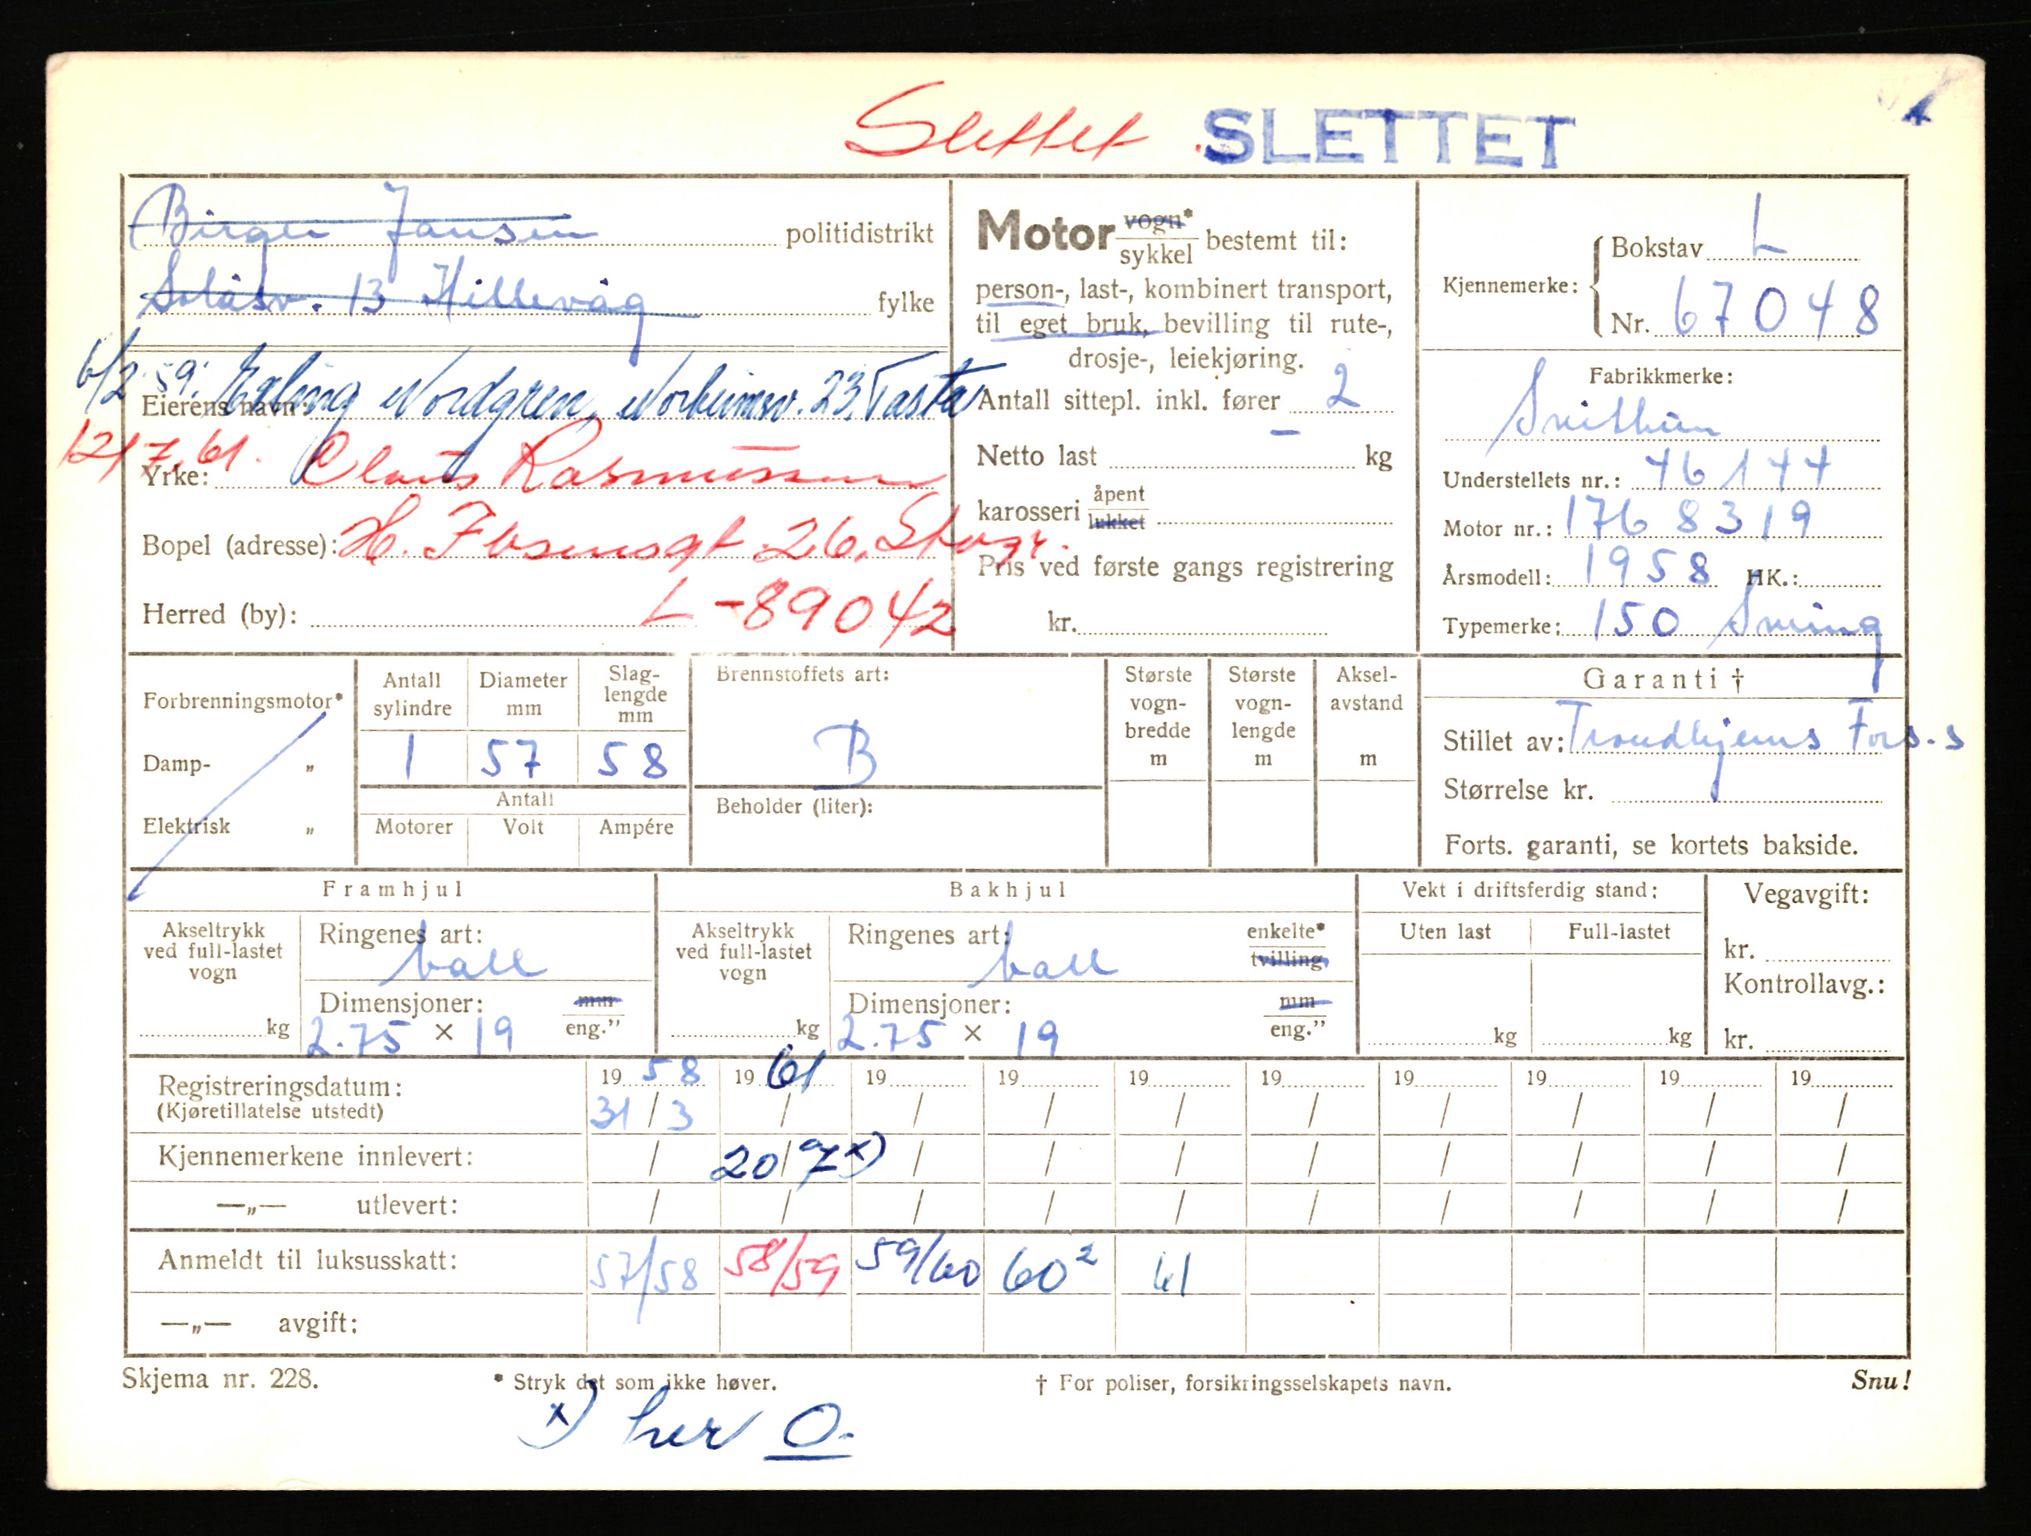 Slettet SLETTET
Birger Jansen politidistrikt
Solåsv. 13 Hillevåg fylke
6/2 59. Erling Nordgren, Norheimsv. 23, Tasta
Eierens navn:
12/7.61. Claus Rasmussen
Yrke:
Bopel (adresse): H. Ibsensgt. 26, Stvgr.
Herred (by): L-89042
Motor vogn* sykkel bestemt til:
person-, last-, kombinert transport,
til eget bruk, bevilling til rute-,
drosje-, leiekjøring.
Antall sittepl. inkl. fører 2
Netto last – kg
karosseri åpent lukket
Pris ved første gangs registrering
kr.
Kjennemerke: Bokstav L
Nr. 67048
Fabrikkmerke:
Svithun
Understellets nr.: 46144
Motor nr.: 1768319
Årsmodell: 1958 HK.:
Typemerke: 150 Sving
Forbrenningsmotor*
Damp- „
Elektrisk „
Antall sylindre Diameter mm Slag-lengde mm
1 57 58
Antall
Motorer Volt Ampére
Brennstoffets art:
B
Beholder (liter):
Største vogn-bredde m
Største vogn-lengde m
Aksel-avstand m
Garanti †
Stillet av: Trondhjems Fors.s
Størrelse kr.
Forts. garanti, se kortets bakside.
Framhjul
Akseltrykk ved full-lastet vogn
kg
Ringenes art: ball
Dimensjoner: mm eng."
2.75 × 19
Bakhjul
Akseltrykk ved full-lastet vogn
kg
Ringenes art: ball enkelte* tvilling.
Dimensjoner: mm eng."
2.75 × 19
Vekt i driftsferdig stand:
Uten last Full-lastet
kg kg
Vegavgift:
kr.
Kontrollavg.:
kr.
Registreringsdatum: 19 58 19 61 19 19 19 19 19 19 19 19
(Kjøretillatelse utstedt) 31/3 / / / / / / / / /
Kjennemerkene innlevert: / 20/7 x) / / / / / / / /
—„— utlevert: / / / / / / / / / /
Anmeldt til luksusskatt: 57/58 58/59 59/60 60² 61
—„— avgift:
Skjema nr. 228. * Stryk det som ikke høver. † For poliser, forsikringsselskapets navn. Snu!
x) her O.